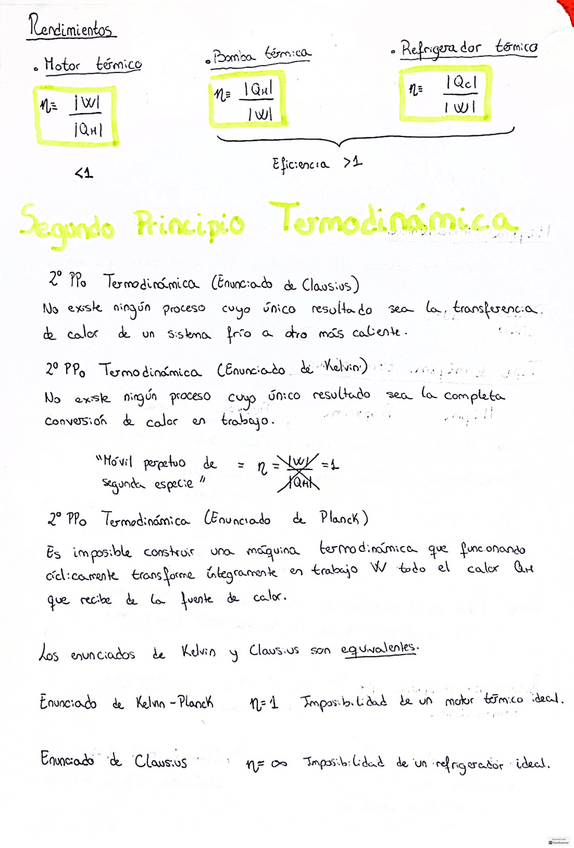 Rendimientos
• Motor térmico
• Bomba térmica
• Refrigerador térmico
η= |W| / |QH|
η= |QH| / |W|
η= |QC| / |W|
<1
Eficiencia >1
Segundo Principio Termodinámica
2º PPo Termodinámica (Enunciado de Clausius)
No existe ningún proceso cuyo único resultado sea la transferencia
de calor de un sistema frío a otro más caliente.
2º PPo Termodinámica (Enunciado de Kelvin)
No existe ningún proceso cuyo único resultado sea la completa
conversión de calor en trabajo.
"Móvil perpetuo de = η = |W| / |QH| = 1
segunda especie"
2º PPo Termodinámica (Enunciado de Planck)
Es imposible construir una máquina termodinámica que funcionando
cíclicamente transforme íntegramente en trabajo W todo el calor QH
que recibe de la fuente de calor.
Los enunciados de Kelvin y Clausius son equivalentes.
Enunciado de Kelvin-Planck η=1 Imposibilidad de un motor térmico ideal.
Enunciado de Clausius η= ∞ Imposibilidad de un refrigerador ideal.